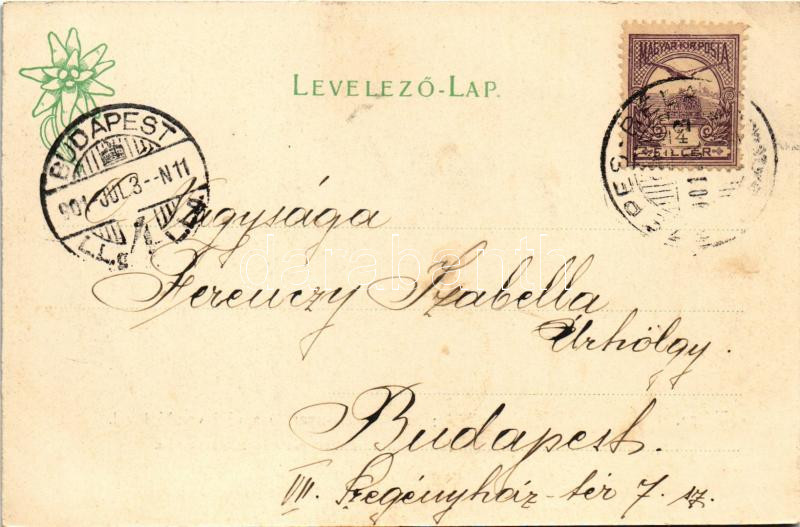 LEVELEZŐ-LAP.
MAGYAR KIR. POSTA
FILLÉR
BUDAPEST
901 JUL 3 - N 11
Nagysága
Ferenczy Izabella
Úrhölgy.
Budapest.
VII. Szegényház-tér 7. sz.
darabanth